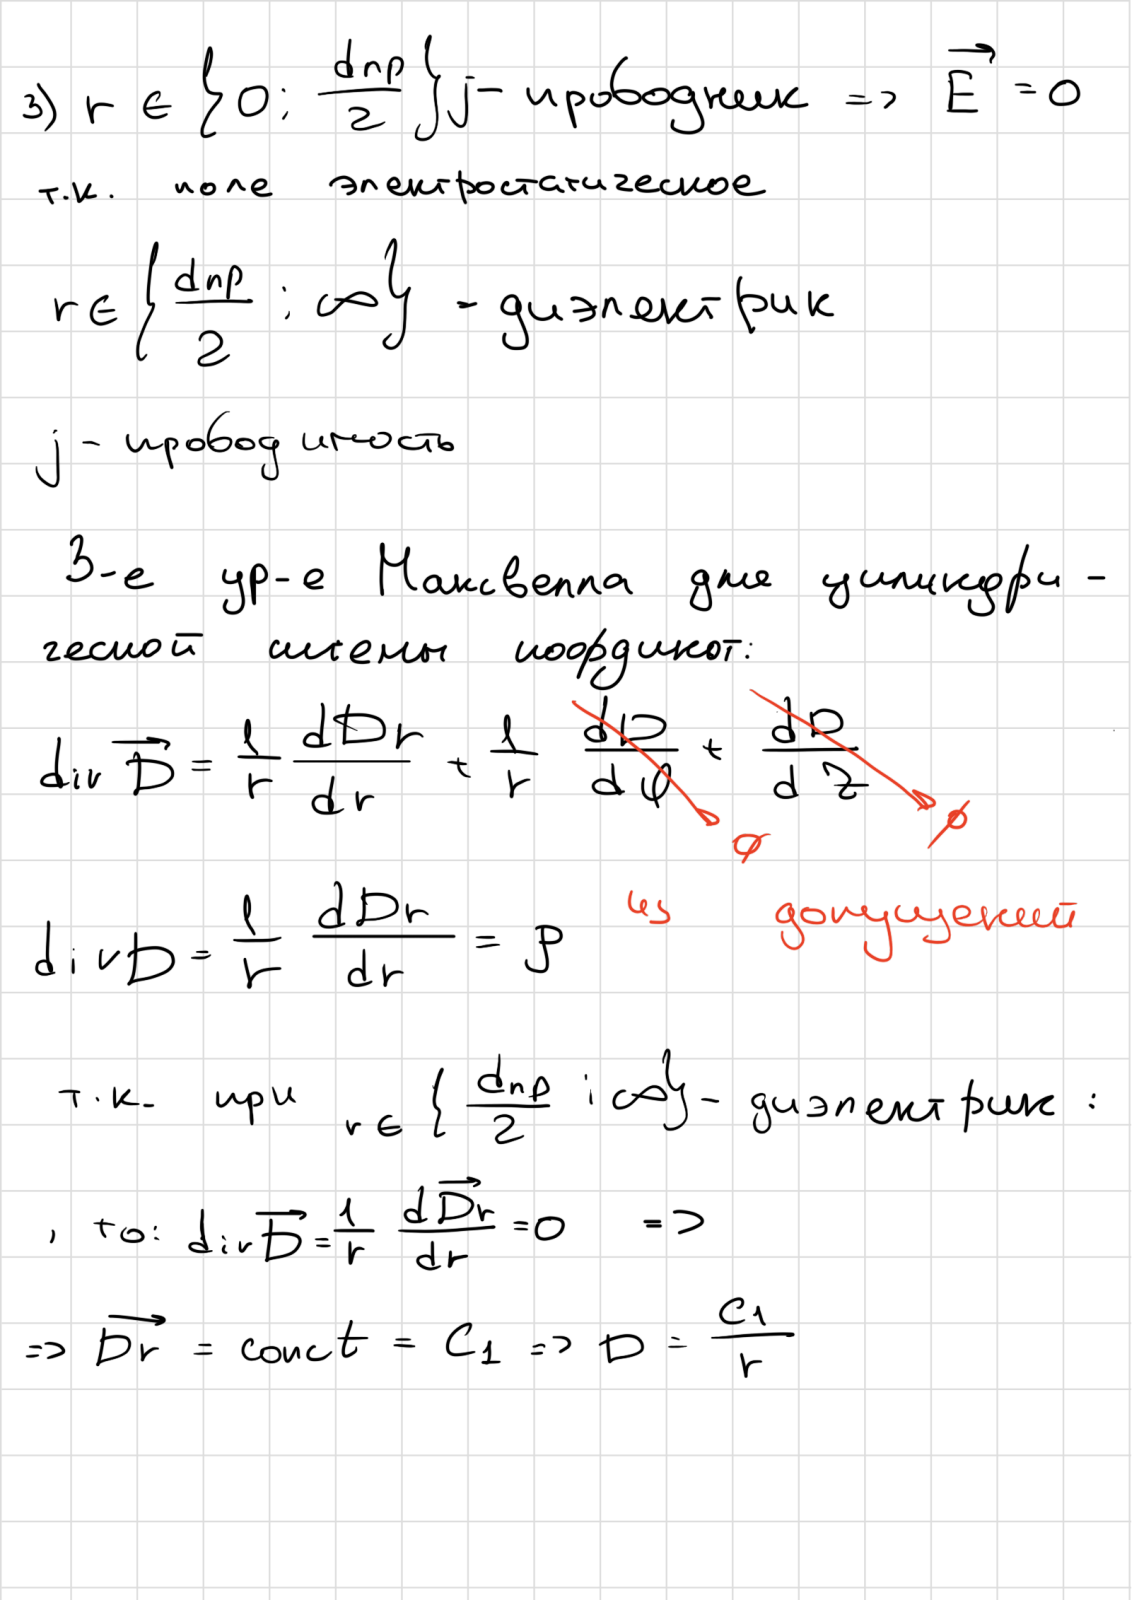 3) r ∈ {0; dпр/2} j - проводник => E⃗ = 0
т.к. поле электростатическое
r ∈ {dпр/2 ; ∞} - диэлектрик
j - проводимость
3-е ур-е Максвелла для цилиндри-
ческой системы координат:
div D⃗ = 1/r dDr/dr + 1/r dD/dφ + dD/dz
0 0
div D = 1/r dDr/dr = ρ из допущений
т.к. при r ∈ {dпр/2 ; ∞} - диэлектрик :
, то: div D⃗ = 1/r dD⃗r/dr = 0 =>
=> D⃗r = const = C1 => D = C1/r